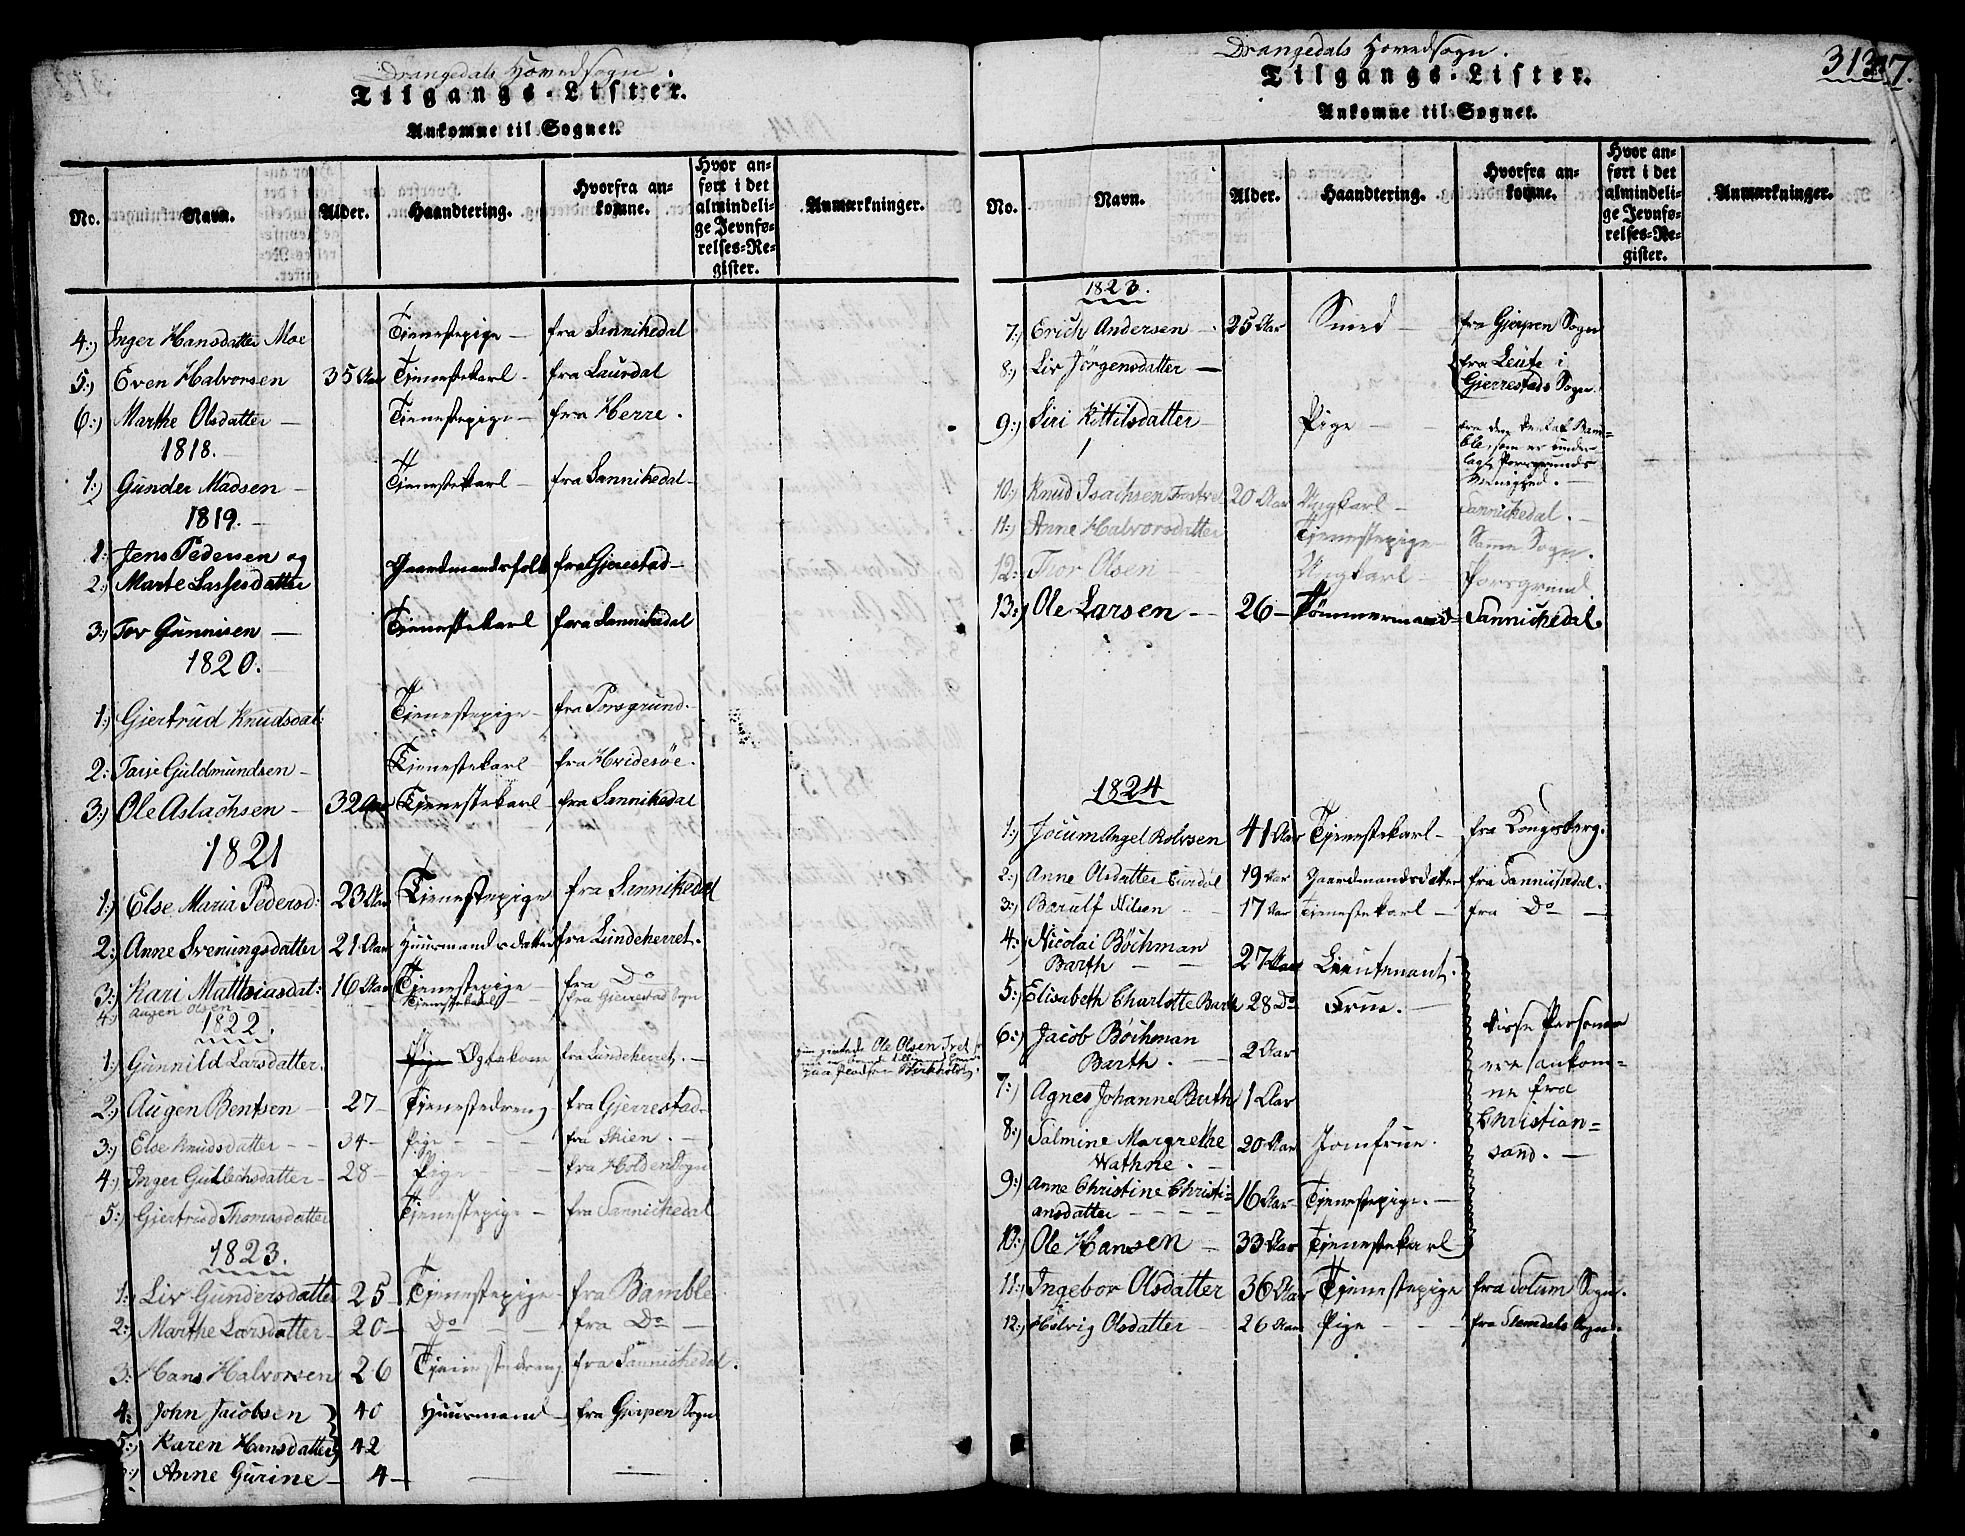 Drangedals Hovedsogn.
Tilgangs-Lister.
Ankomne til Sognet.
No. Navn. Alder. Haandtering. Hvorfra ankomne. Hvor anført i det almindelige Jevnførelses-Register. Anmærkninger.
4:) Inger Hansdatter Moe Tjenestepige — fra Sannikedal
5:) Even Halvorsen 35 Aar Tjenestekarl - fra Laurdal
6:) Marthe Olsdatter — Tjenestepige — fra Herre.
1818.
1:) Gunder Madsen — Tjenestekarl - fra Sannikedal -
1819. -
1: Jens Pedersen og
2:) Marte Lassesdatter Gaardmandsfolk fra Gjerestad —
3:) Tov Gunnisen — Tjenestekarl fra Sannikedal
1820.
1:) Gjertrud Knudsdat: Tjenestepige - fra Porsgrund.
2: Tarje Guldmundsen - Tjenestekarl - fra Hvidesöe.
3:) Ole Aslachsen - 32 Aar Tjenestekarl - fra Sannikedal
1821
1:) Else Maria Pedersd: 23 Aar Tjenestepige fra Sannikedal
2:) Anne Svenungsdatter 21 Aar Huusmandsdatter fra Lundeherret.
3:) Kari Matthiasdat: 16 Aar Tjenestepige - fra Do
4:) Augen Olsen Tjenestekarl fra Gjerrestad Sogn
1822.
1:) Gunnild Larsdatter. Pige Egtekone fra Lundeherret. — Ole Olsen
2:) Augen Bentsen - 27 - Tjenestedreng fra Gjerrestad -
3:) Else Knudsdatter - - 34 - Pige - - - fra Skien. -
4:) Inger Gullechsdatter - 28 - Pige - - fra Holden Sogn
5:) Giertrud Thomasdatter Tjenestepige - fra Sannichedal
1823.
1: Liv Gundersdatter 25 - Tjenestepige - fra Bamble
2:) Marthe Larsdatter - 20 - Do - - fra Do -
3: Hans Halvorsen 26 Tjenestedreng fra Sannichedal.
4: John Jacobsen 40 Huusmand - fra Gjerpen Sogn
5:) Karen Hansdatter 42
Anne Gurine - 4 - — —
Drangedals Hovedsogn.
313
7.
Tilgangs-Lister.
Ankomne til Sognet.
No. Navn. Alder. Haandtering. Hvorfra ankomne. Hvor anført i det almindelige Jevnførelses-Register. Anmærkninger.
1823.
7:) Erich Andersen - 25 Aar Smed - fra Gjerpen Sogn
8:) Liv Jörgensdatter — fra Leute i
Gjerrestads Sogn.
9:) Siri Kittilsdatter - Pige - - fra den Deel af Bam=
ble, som er under=
lagt Porsgrunds
Menighed. -
10:) Knud Isachsen 20 Aar Ungkarl - Sannichedal. -
11:) Anne Halvorsdatter Tjenestepige - Samme Sogn.
12: Thor Olsen - Ungkarl - Porsgrund
13:) Ole Larsen - - 26 - Tömmermand - Sannichedal.
1824
1:) Jocum Angel Rolvsen 41 Aar Tjenestekarl - fra Kongsberg.
2:) Anne Olsdatter 19 Aar Gaardmandsdatter fra Sannichedal.
3:) Barulf Nilsen - - 17 Aar Tjenestekarl - fra Do —
4:) Nicolai Böchman
Barth - - 27 Aar Lieutenant.
5:) Elisabeth Charlotte Barth 28 Do Frue. -
6:) Jacob Böchman
Barth. - 2 Aar
disse Personer
ere ankom=
ne fra
Christian=
sand. -
7:) Agnes Johanne Barth 1 Aar
8:) Salmine Margrethe
Wathne. - 20 Aar Jomfrue.
9:) Anne Christine Christi=
ansdatter - - - - 16 Aar Tjenestepige. -
10:) Ole Hansen - 33 Aar Tjenestekarl
11:) Ingebor Olsdatter 36 Aar Tjenestepige fra Solum Sogn.
12:) Helvig Olsdatter - 26 Aar Pige - - - fra Slemdals Sogn.